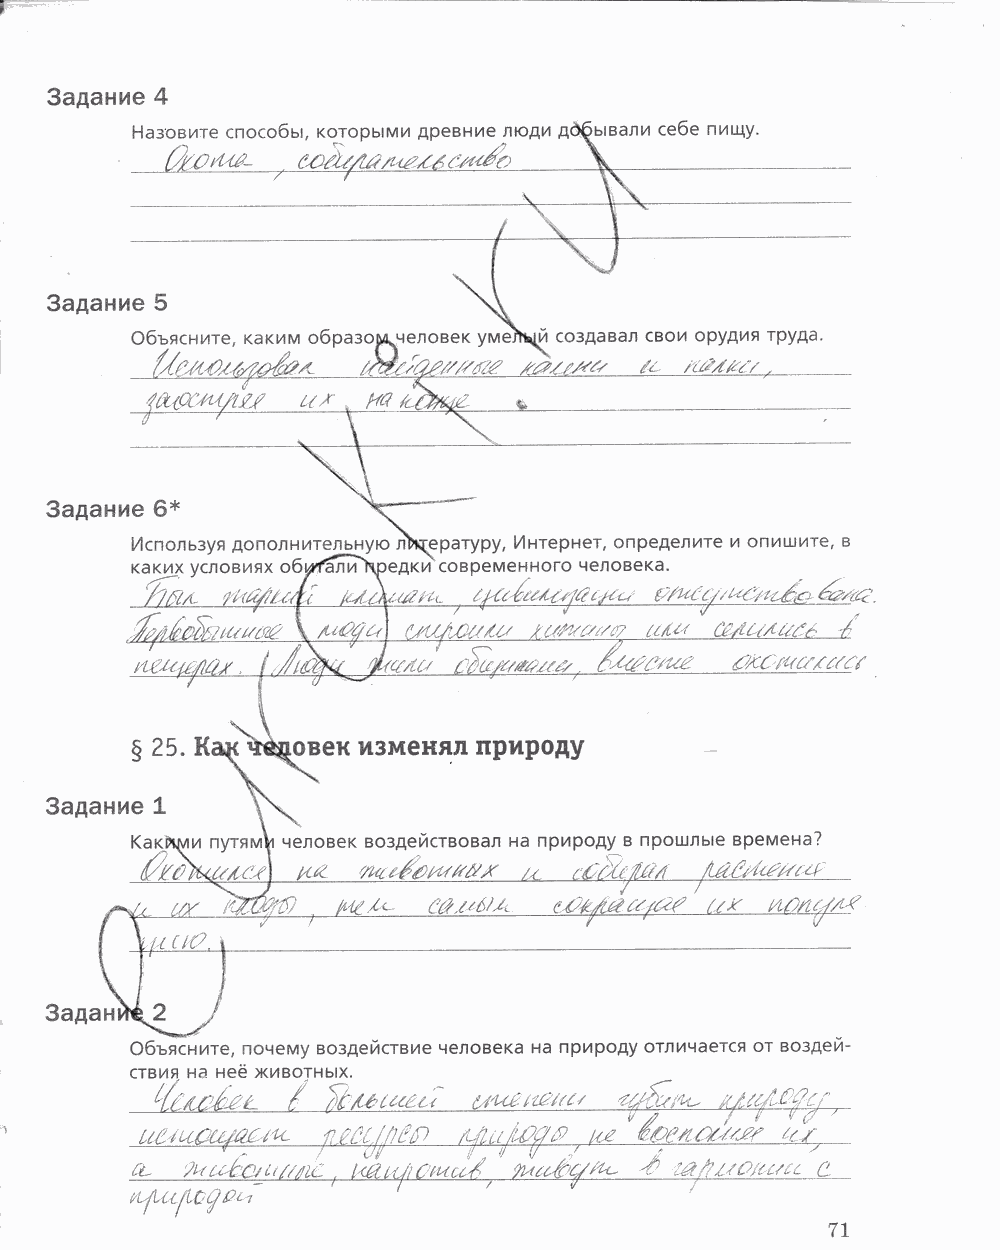 Задание 4
Назовите способы, которыми древние люди добывали себе пищу.
Охота, собирательство
Задание 5
Объясните, каким образом человек умелый создавал свои орудия труда.
Использовал найденные камни и палки,
заостряя их на конце.
Задание 6*
Используя дополнительную литературу, Интернет, определите и опишите, в
каких условиях обитали предки современного человека.
Был жаркий климат, цивилизация отсутствовала.
Первобытные люди строили хижины или селились в
пещерах. Люди жили общинами, вместе охотились
§ 25. Как человек изменял природу
Задание 1
Какими путями человек воздействовал на природу в прошлые времена?
Охотился на животных и собирал растения
и их плоды, тем самым сокращая их популя
цию.
Задание 2
Объясните, почему воздействие человека на природу отличается от воздей-
ствия на неё животных.
Человек в большей степени губит природу,
истощает ресурсы природы, не восполняя их,
а животные, напротив, живут в гармонии с
природой
71